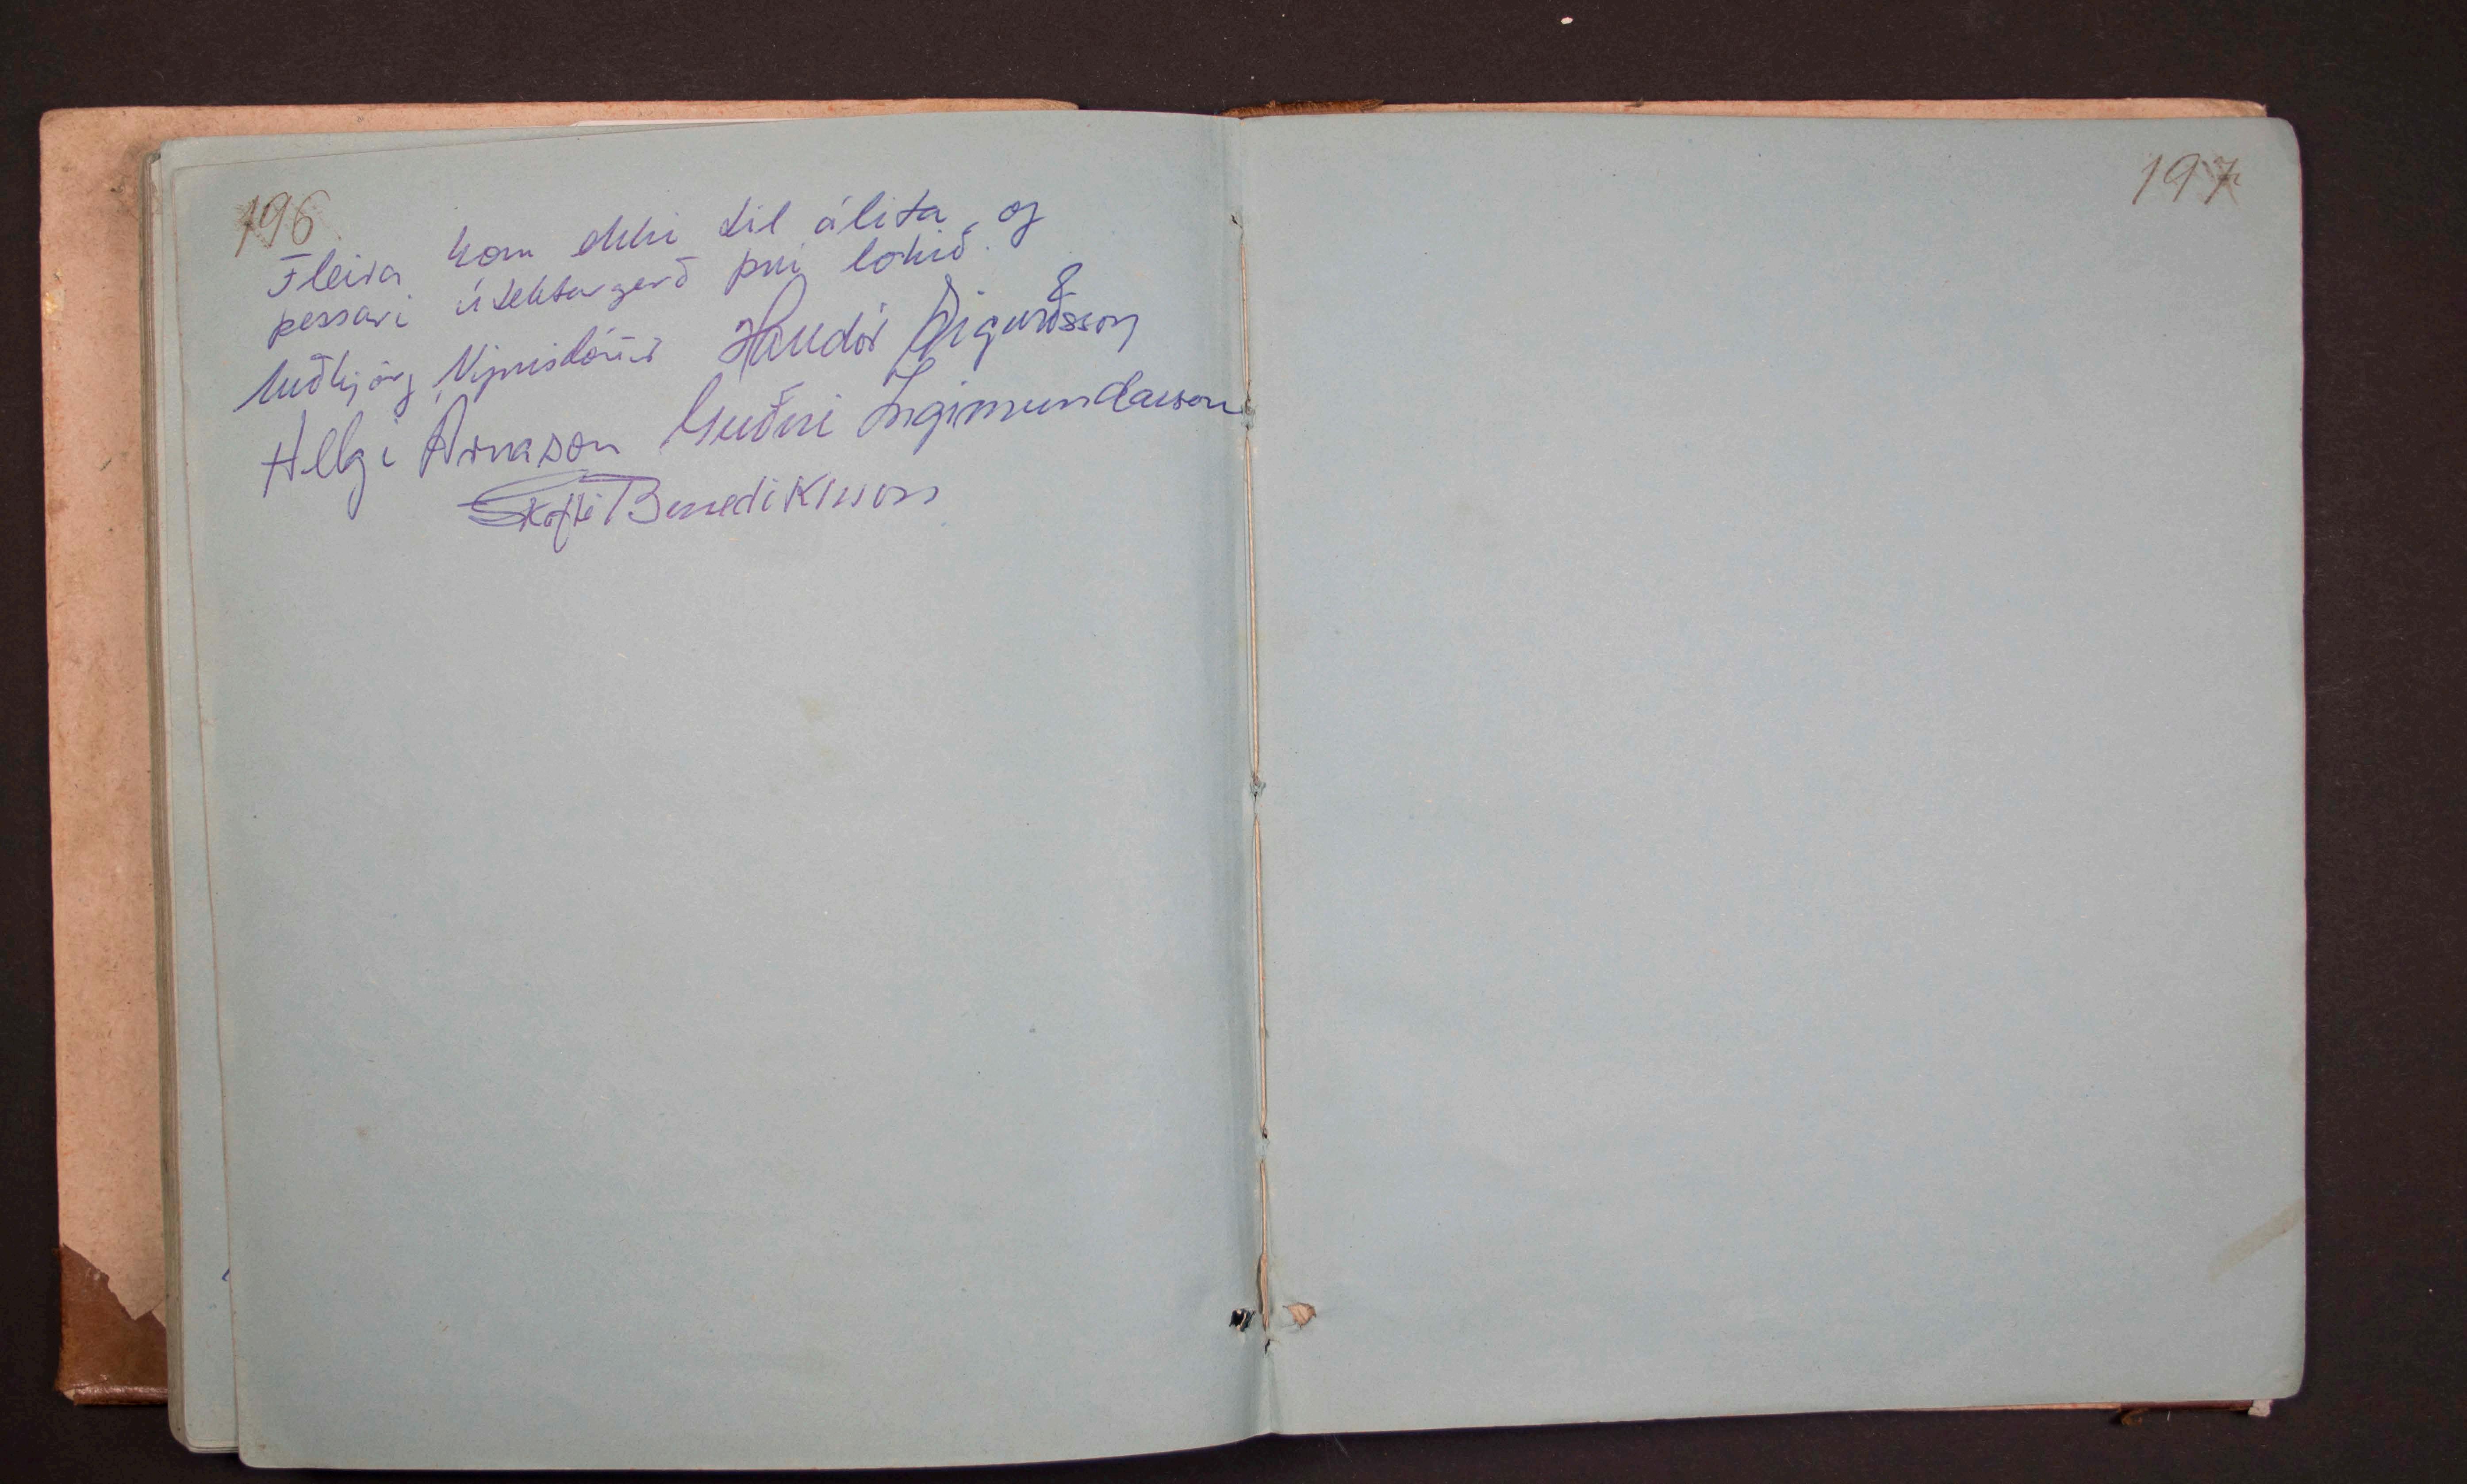 196
Fleira kom ekki til álita, og
þessari úttektargerð því lokið.
Guðbjörg Halldór Sigurðsson
Helgi Árnason Guðni Ingimundarson
Skafti Benediktsson
197